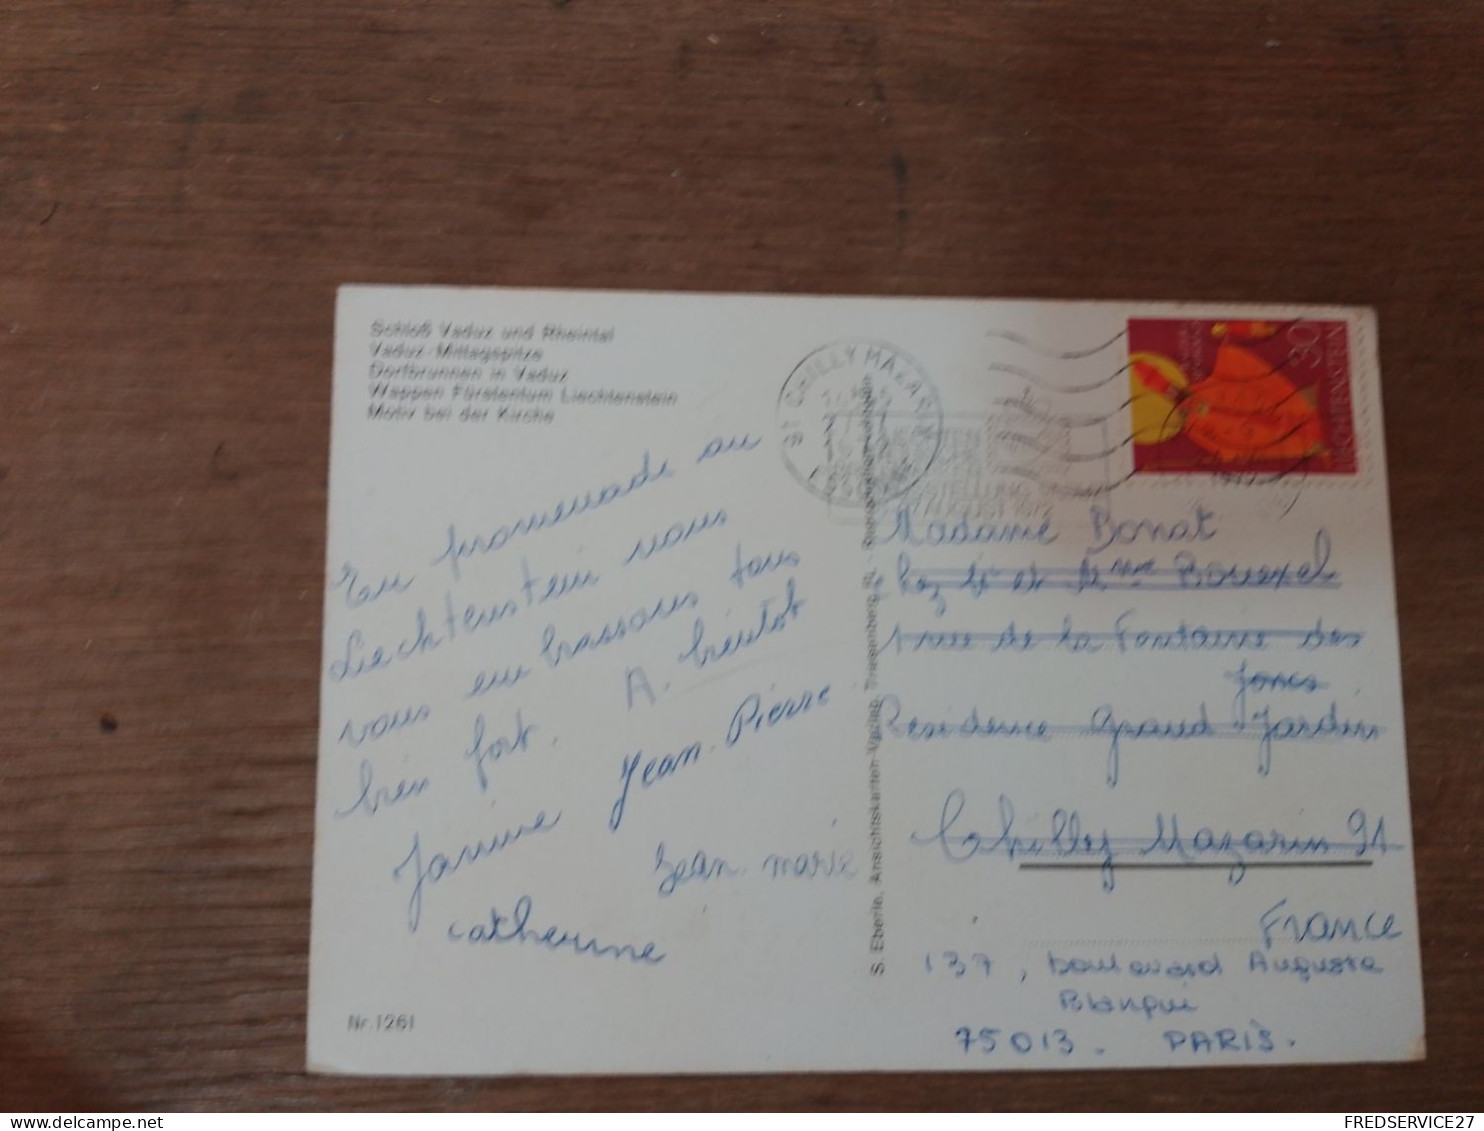 Schloß Vaduz und Rheintal
Vaduz-Mittagspitze
Dorfbrunnen in Vaduz
Wappen Fürstentum Liechtenstein
Motiv bei der Kirche
En promenade au
Liechtenstein nous
vous embrassons tous
bien fort. A. bientôt
Janine Jean-Pierre
Jean-marie
catherine
Nr. 1261
S. Eberle, Ansichtskarten-Verlag, Triesenberg, FL.
91 CHILLY MAZARIN
30
LIECHTENSTEIN
Madame Bonat
chez Mr et Mme Rouexel
1 rue de la Fontaine des
Joncs
Residence Grand Jardin
Chilly Mazarin 91
France
137, boulevard Auguste
Blanqui
75013. PARIS.
FREDSERVICE27